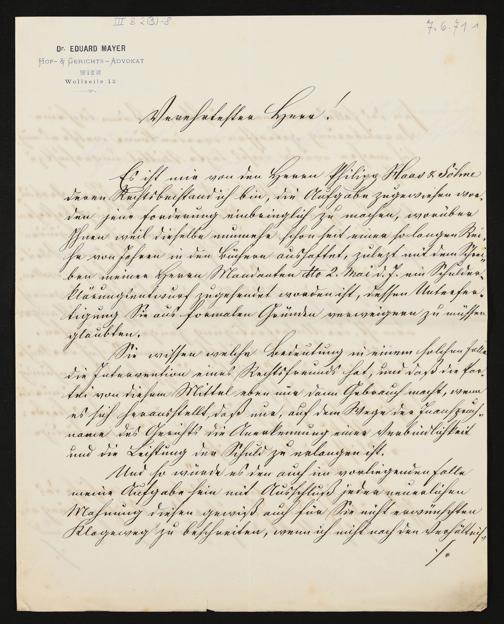 III B 2(3)-8
7.6.71 1
Dr. EDUARD MAYER
HOF- & GERICHTS-ADVOKAT
WIEN
Wollzeile 12
Verehrtester Herr!
Es ist mir von den Herren Philipp Haas & Söhne
deren Rechtsbeistand ich bin, die Aufgabe zugewiesen wor-
den jene Forderung einbringlich zu machen, worüber
Ihnen weil dieselbe nunmehr schon seit einer so langen Rei-
he von Jahren in den Büchern aushaftet, zuletzt mit dem Schrei-
ben meiner Herren Mandanten dto 2. Mai d. J. ein Schulder-
klärungsentwurf zugesendet worden ist, dessen Unterfer-
tigung Sie aus formalen Gründen verweigern zu müssen
glaubten.
Sie wissen welche Bedeutung in einem solchen Falle
die Intervention eines Rechtsfreunds hat, und daß die Par-
tei von diesem Mittel eben nur dann Gebrauch macht, wenn
es sich herausstellt daß nur, auf dem Wege der Inanspruch-
name des Gerichts die Anerkennung einer Verbindlichkeit
und die Leistung der Schuld zu erlangen ist.
Und so würde es denn auch im vorliegenden Falle
meine Aufgabe sein mit Ausschluß jeder neuerlichen
Mahnung diesen gewiß auch für Sie nicht erwünschten
Klageweg zu beschreiten, wenn ich nicht nach den Verhältnis-
./.